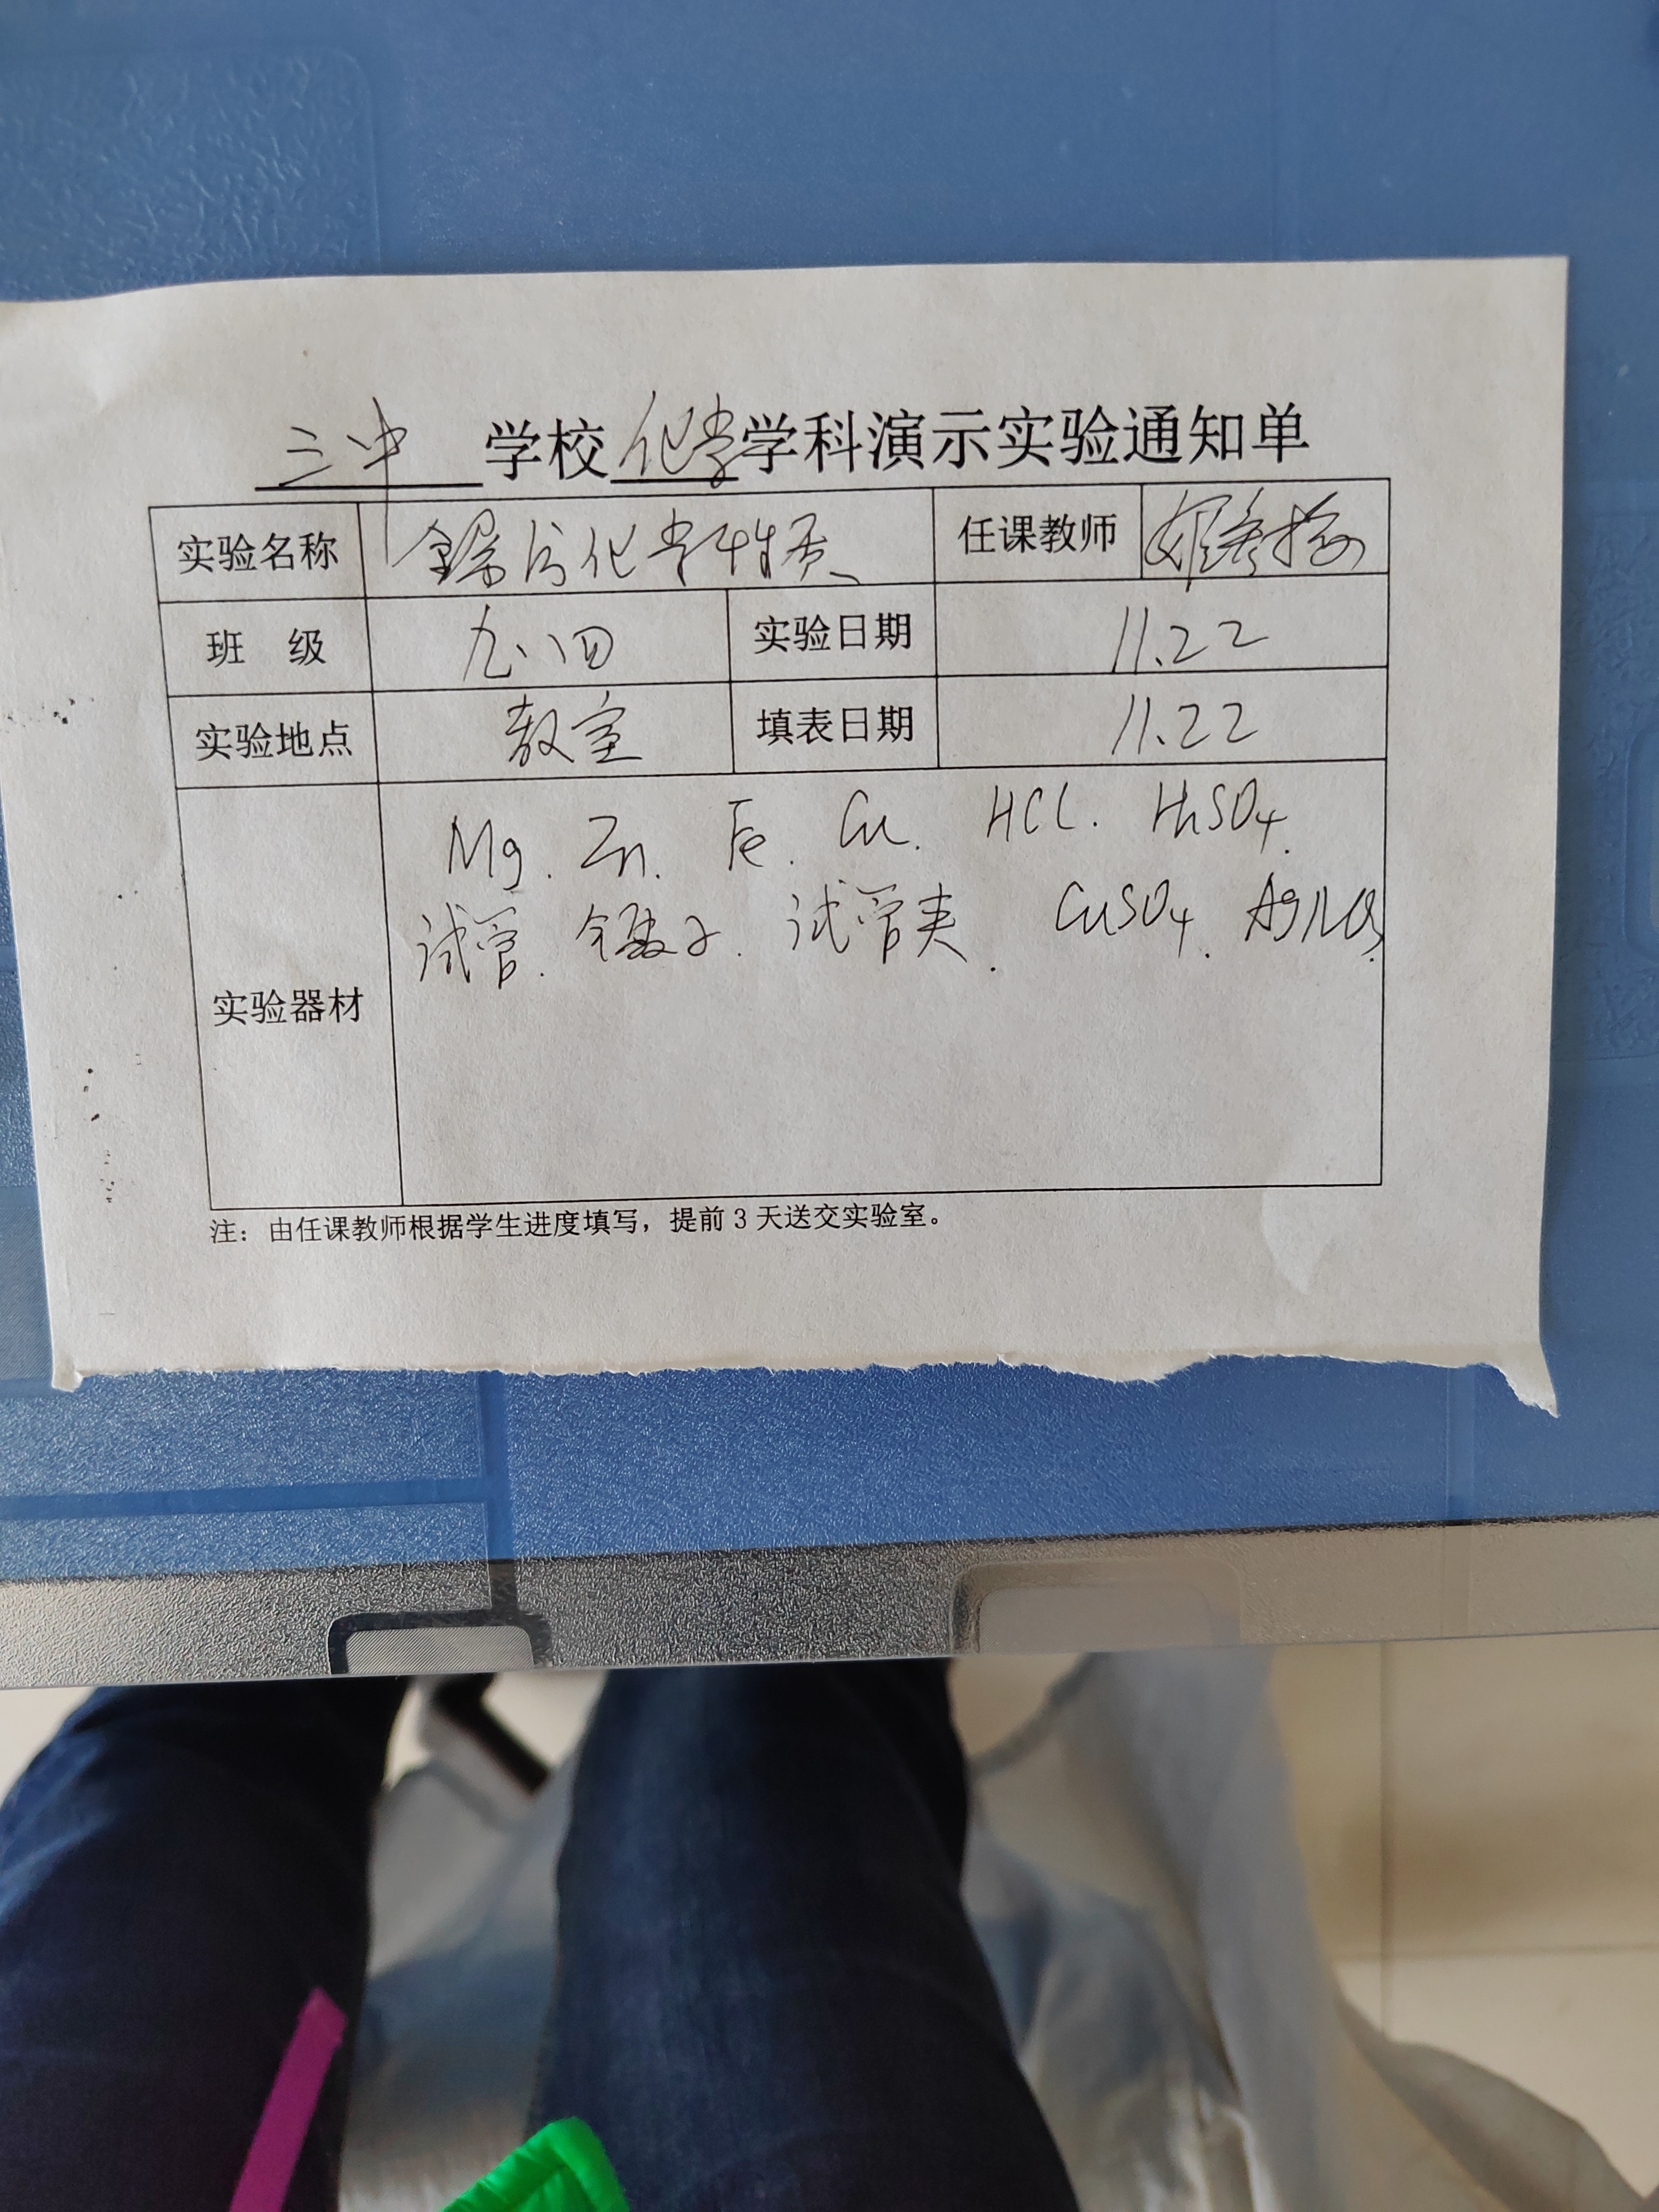 三中 学校 化学 学科演示实验通知单
实验名称 金属的化学性质 任课教师
班 级 九.四 实验日期 11.22
实验地点 教室 填表日期 11.22
实验器材
Mg. Zn. Fe. Cu. HCl. H2SO4.
试管. 镊子. 试管夹. CuSO4. AgNO3.
注：由任课教师根据学生进度填写，提前 3 天送交实验室。